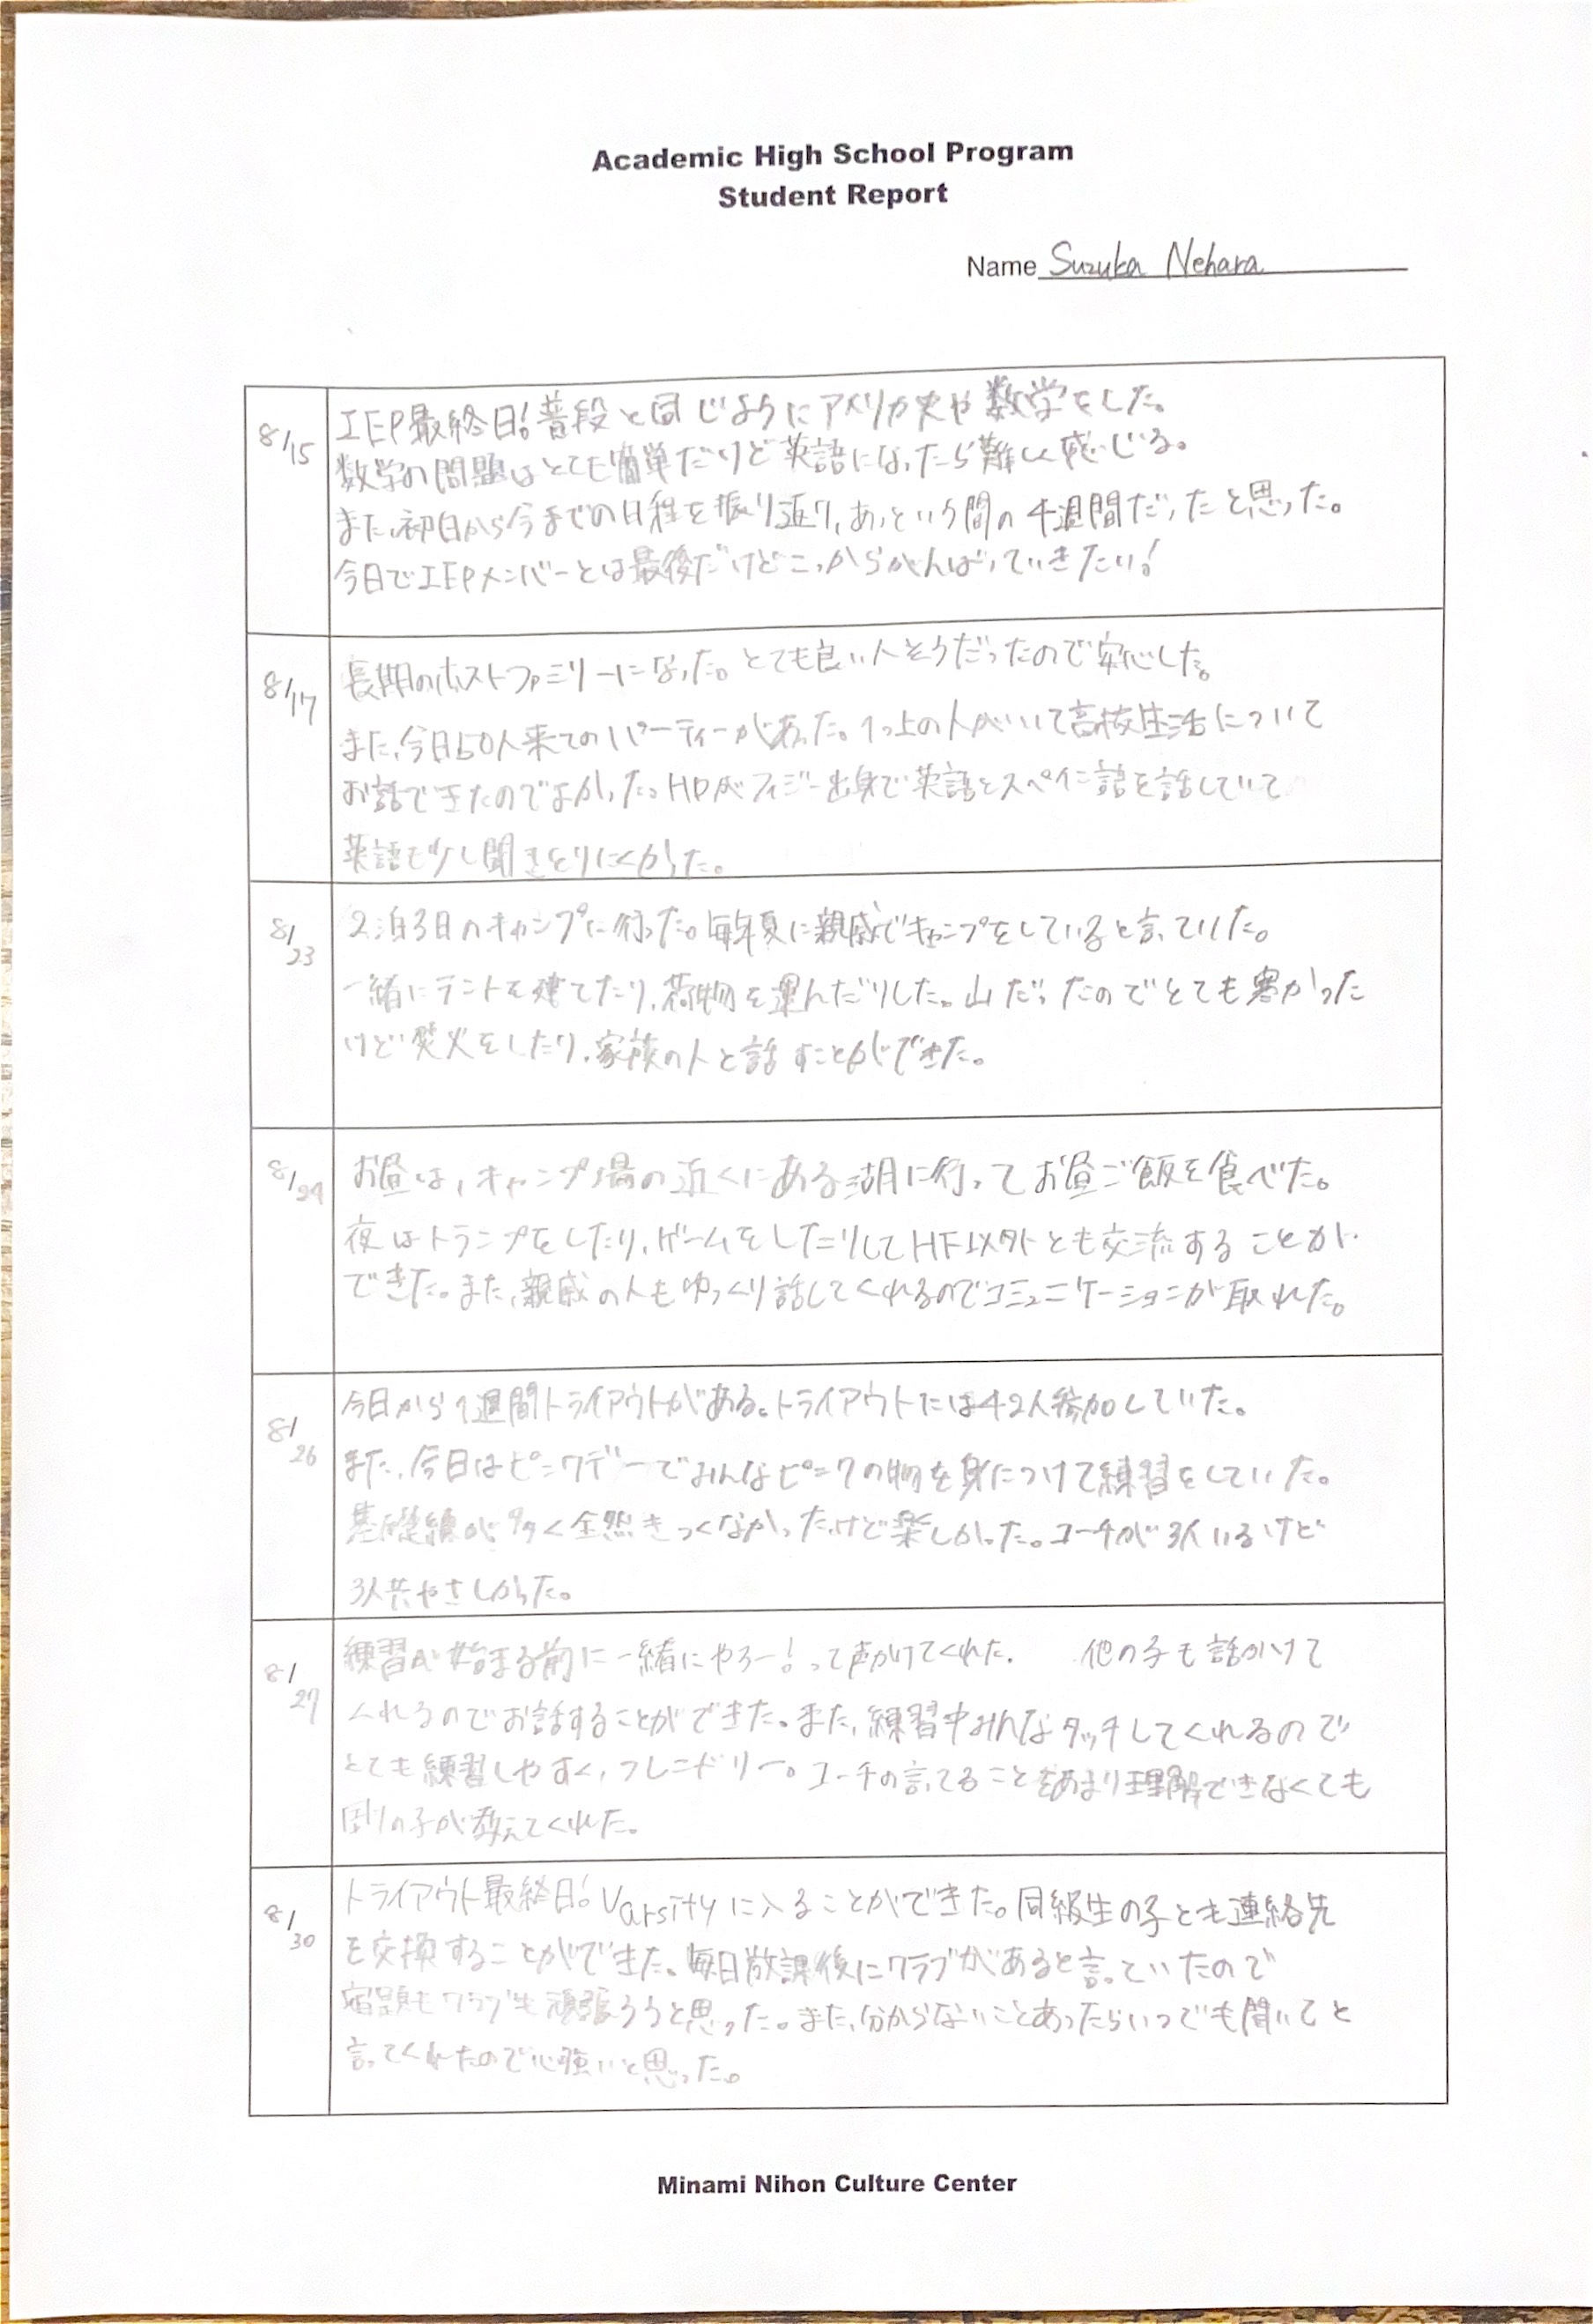 Academic High School Program
Student Report
Name Suzuka Nehara
8/15
IEP最終日!普段と同じようにアメリカ史や数学をした。
数学の問題はとても簡単だけど英語になったら難しく感じる。
また、初日から今までの日程を振り返り、あっという間の4週間だったと思った。
今日でIEPメンバーとは最後だけどこっからがんばっていきたい!
8/17
長期のホストファミリーになった。とても良い人そうだったので安心した。
また、今日50人来てのパーティーがあった。1つ上の人がいて高校生活について
お話できたのでよかった。HDがフィジー出身で英語とスペイン語を話していて
英語も少し聞きとりにくかった。
8/23
2泊3日のキャンプに行った。毎年夏に親戚でキャンプをしていると言っていた。
一緒にテントを建てたり、荷物を運んだりした。山だったのでとても寒かった
けど焚火をしたり、家族の人と話すことができた。
8/24
お昼は、キャンプ場の近くにある湖に行ってお昼ご飯を食べた。
夜はトランプをしたり、ゲームをしたりしてHF以外とも交流することが
できた。また、親戚の人もゆっくり話してくれるのでコミュニケーションが取れた。
8/26
今日から1週間トライアウトがある。トライアウトには42人参加していた。
また、今日はピンクデーでみんなピンクの物を身につけて練習をしていた。
基礎練が多く全然きつくなかったけど楽しかった。コーチが3人いるけど
3人共やさしかった。
8/27
練習が始まる前に一緒にやろー!って声かけてくれた. 他の子も話かけて
くれるのでお話することができた。また、練習中みんなタッチしてくれるので
とても練習しやすく、フレンドリー。コーチの言ってることをあまり理解できなくても
周りの子が教えてくれた。
8/30
トライアウト最終日! Varsityに入ることができた。同級生の子とも連絡先
を交換することができた。毎日放課後にクラブがあると言っていたので
宿題もクラブも頑張ろうと思った。また、分からないことあったらいつでも聞いてと
言ってくれたので心強いと思った。
Minami Nihon Culture Center